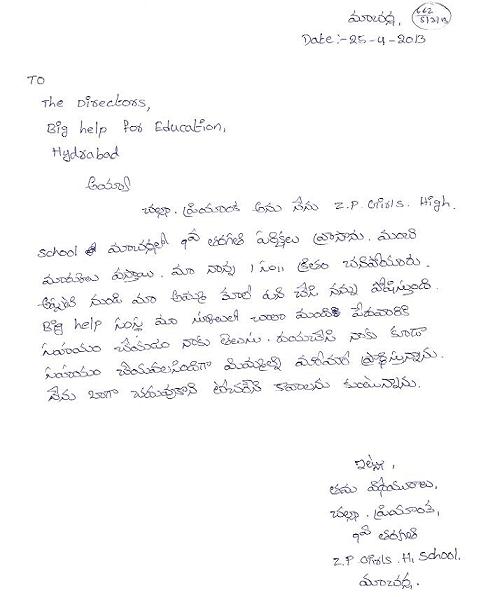 మాచర్ల,
662
5/3/13
Date:-25-4-2013
TO
The Directors,
Big help for Education,
Hydrabad
అయ్యా
చల్లా. ప్రియాంక అను నేను Z.P. Girls. High.
School మాచర్లలో 9వ తరగతి పరీక్షలు వ్రాసాను. మంచి
మార్కులు వస్తాయి. మా నాన్న 1 సం॥ క్రితం చనిపోయారు.
అప్పటి నుండి మా అమ్మ కూలి పని చేసి నన్ను పోషిస్తుంది.
Big help సంస్థ మా స్కూలులో చాలా మందికి పేదవారికి
సహాయం చేయడం నాకు తెలుసు. దయచేసి నాకు కూడా
సహాయం చేయవలసిందిగా మిమ్మల్ని మరీమరీ ప్రార్థిస్తున్నాను.
నేను బాగా చదువుకొని టీచర్‌ని కావాలను కుంటున్నాను.
ఇట్లు,
తమ విధేయురాలు,
చల్లా. ప్రియాంక,
9వ తరగతి
Z.P Girls. Hi School.
మాచర్ల.